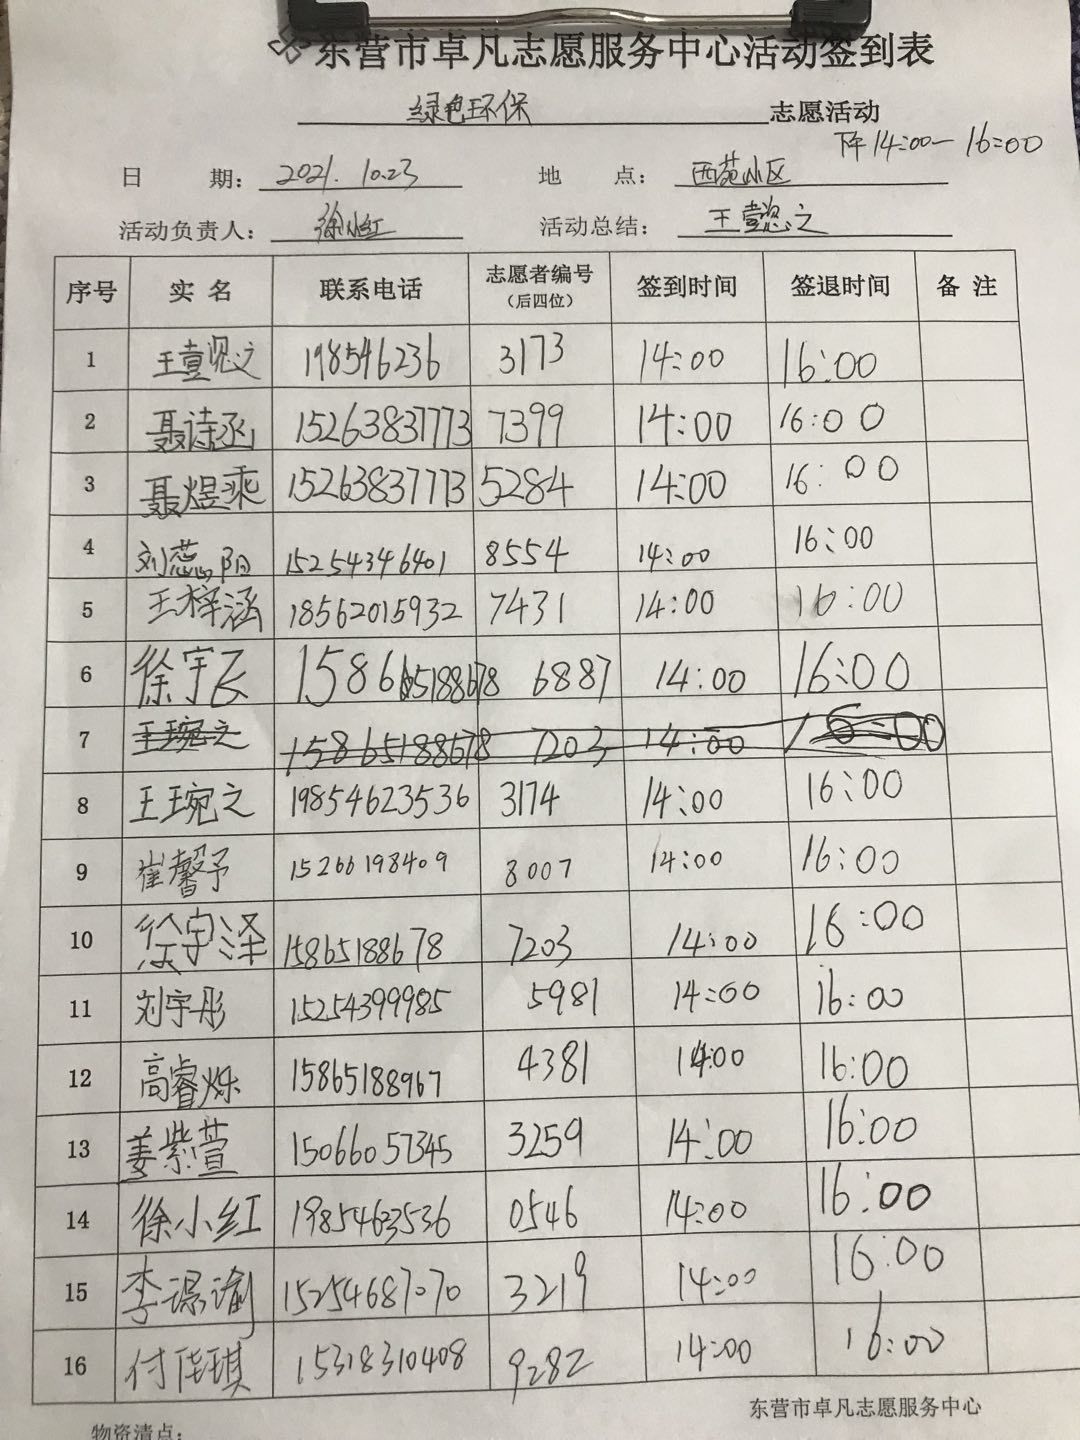 东营市卓凡志愿服务中心活动签到表
绿色环保 志愿活动
下午14:00—16:00
日 期: 2021.10.23 地 点: 西苑小区
活动负责人: 徐小红 活动总结: 王壹之
序号 实 名 联系电话 志愿者编号(后四位) 签到时间 签退时间 备 注
1 王壹之 198546236 3173 14:00 16:00
2 聂诗函 15263837773 7399 14:00 16:00
3 聂煜乘 15263837773 5284 14:00 16:00
4 刘蕊阳 15254346401 8554 14:00 16:00
5 王梓涵 18562015932 7431 14:00 16:00
6 徐宇飞 15865188678 6887 14:00 16:00
7 王琬之 15865188678 7203 14:00 16:00
8 王琬之 19854623536 3174 14:00 16:00
9 崔馨予 15266198409 8007 14:00 16:00
10 徐宇泽 15865188678 7203 14:00 16:00
11 刘宇彤 15254399985 5981 14:00 16:00
12 高睿烁 15865188967 4381 14:00 16:00
13 姜紫萱 15066057345 3259 14:00 16:00
14 徐小红 19854623536 0546 14:00 16:00
15 李瑜 15254687070 3219 14:00 16:00
16 付佳琪 15318310408 9282 14:00 16:00
东营市卓凡志愿服务中心
物资清点: